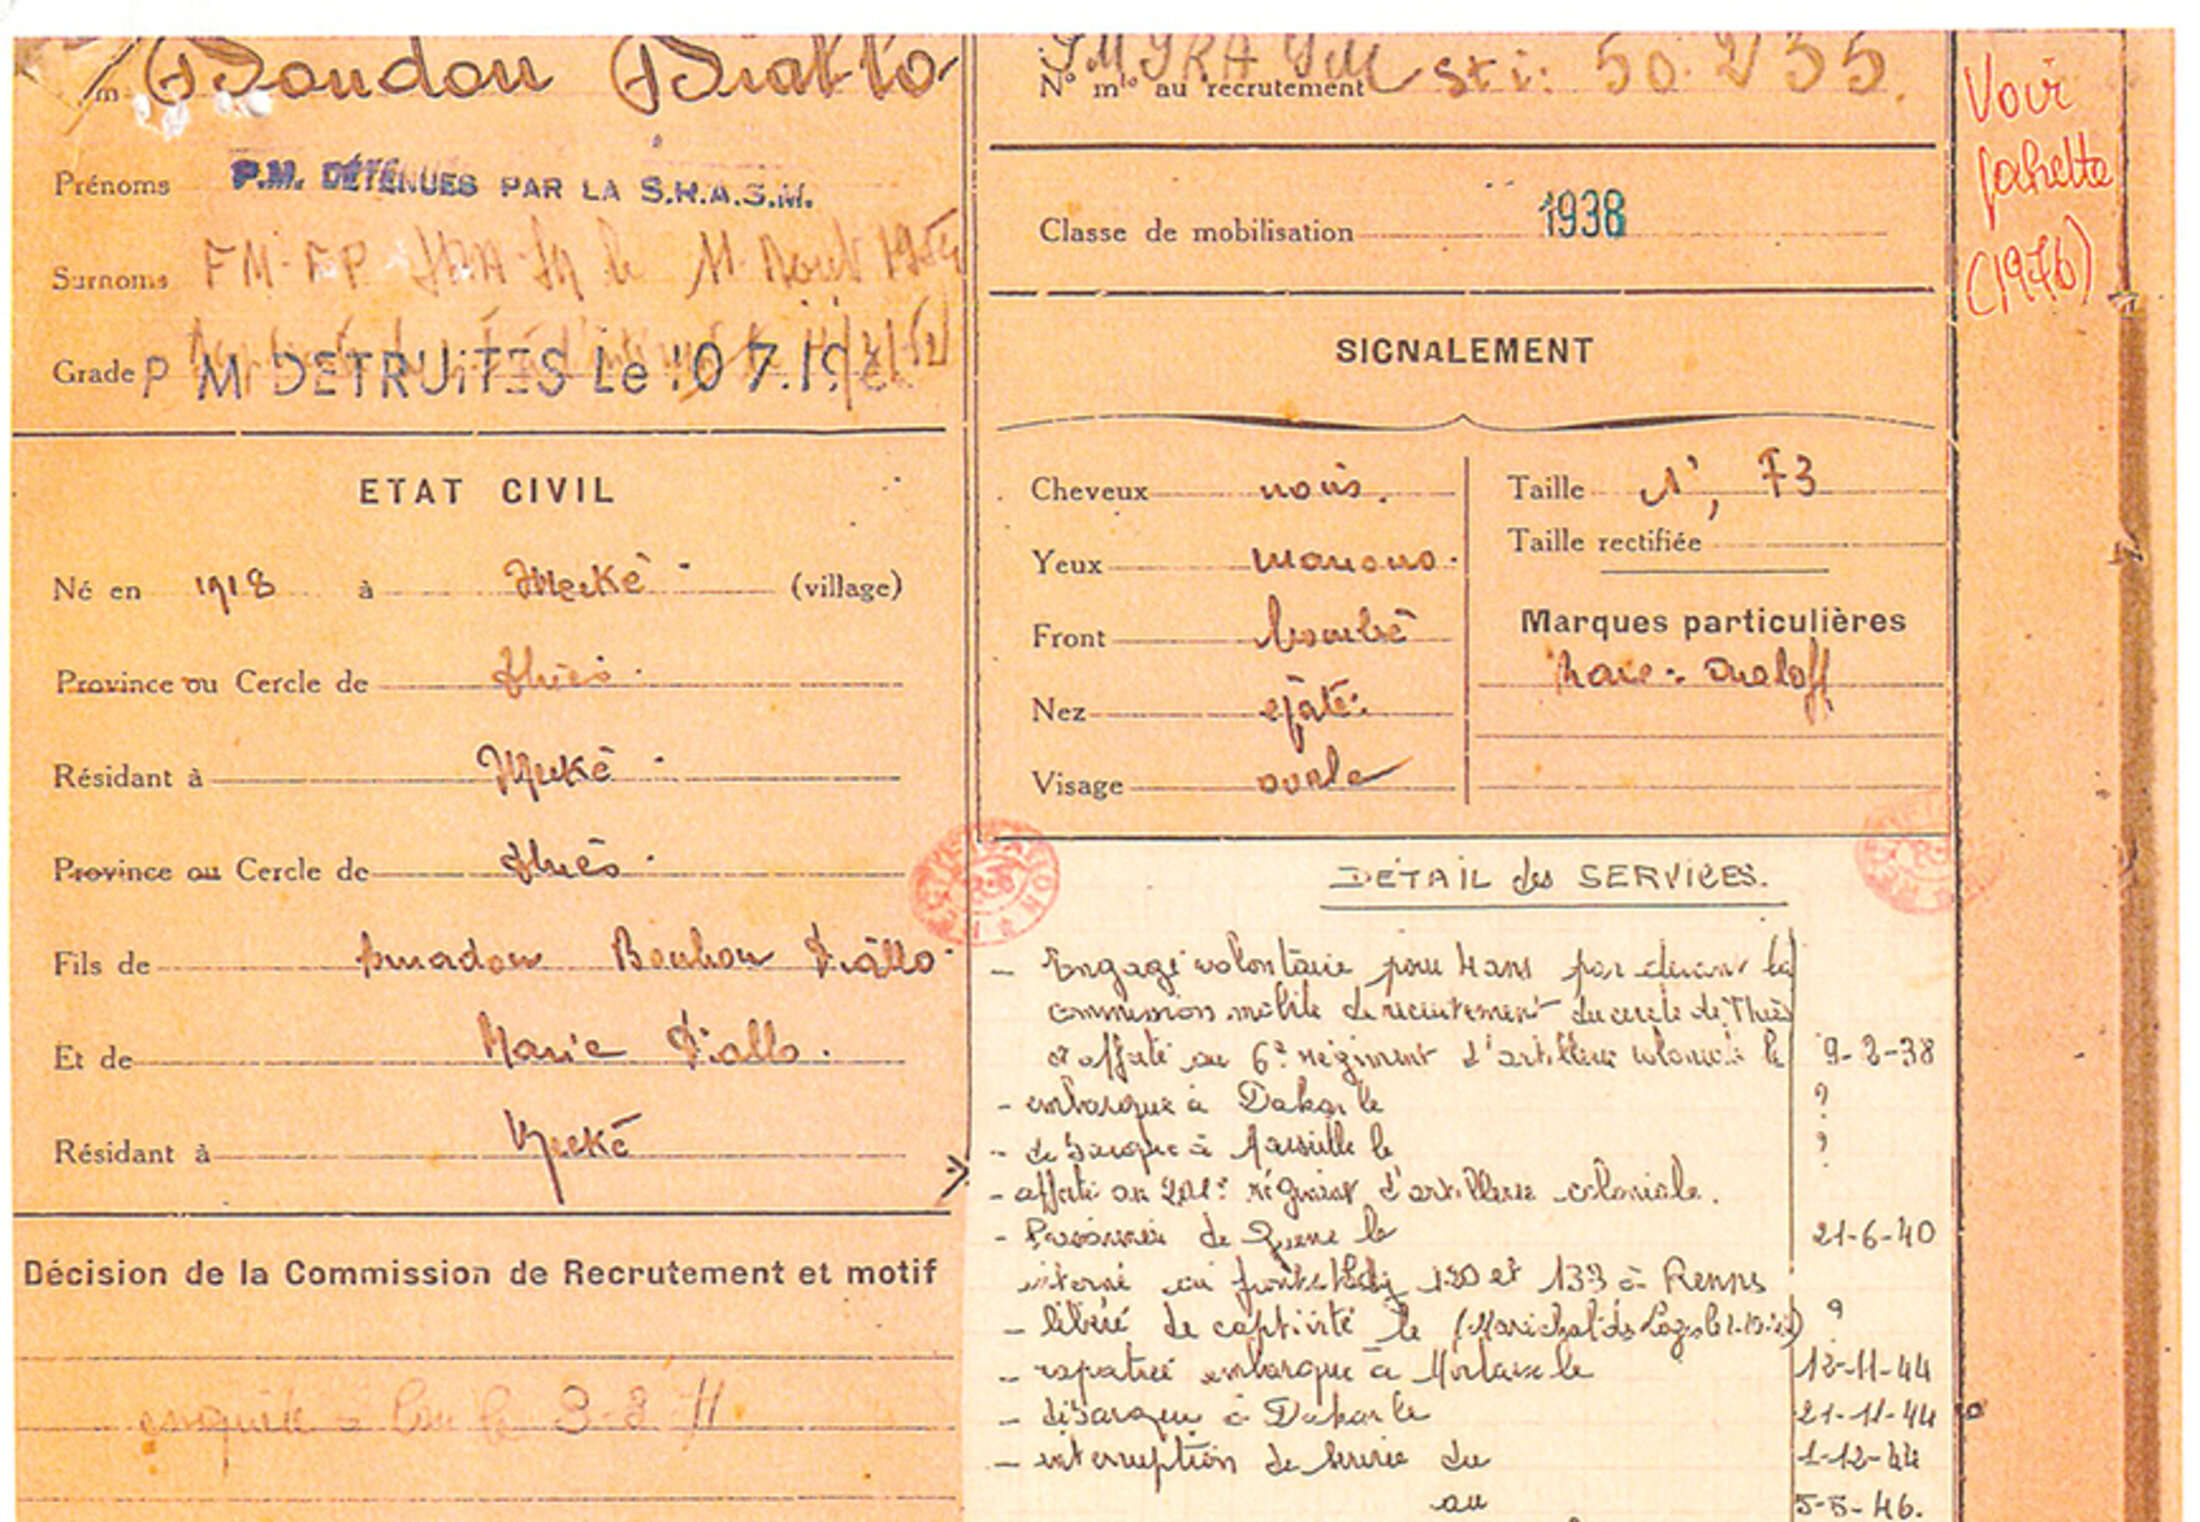 Doudou Diallo
Prénoms P.M. DÉTENUES PAR LA S.H.A.S.M.
Surnoms le 11 Aout
Grade P M DETRUITES Le 10 7.19
ETAT CIVIL
Né en 1918 à Mecké (village)
Province ou Cercle de Thiès
Résidant à Mecké
Province ou Cercle de Thiès
Fils de Amadou Boubou Diallo
Et de Marie Diallo.
Résidant à Mecké
Décision de la Commission de Recrutement et motif
N° mle au recrutement 50.235.
Classe de mobilisation 1938
SIGNALEMENT
Cheveux noirs.
Yeux marrons.
Front bombé
Nez épaté
Visage ovale
Taille 1, 73
Taille rectifiée
Marques particulières
Race: Oualoff
DÉTAIL des SERVICES.
- Engagé volontaire pour 4 ans par devant la
commission mobile de recrutement du cercle de Thiès
et affecté au 6e régiment d'artillerie coloniale le 9-2-38
- embarqué à Dakar le ?
- débarqué à Marseille le ?
- affecté au régiment d'artillerie coloniale.
- Prisonnier de guerre le 21-6-40
interné au 130 et 133 à Rennes
- libéré de captivité le (Maréchal des Logis le ) ?
- rapatrié embarqué à Morlaix le 12-11-44
- débarqué à Dakar le 21-11-44
- interruption de service du 1-12-44
au 5-5-46.
Voir
pochette
(1976)